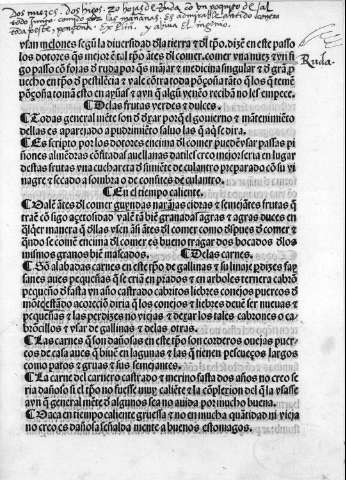 Dos nuezes. dos higos. 20 hojas de Ruda. con un poquito de sal
todo junto. comido por las mañanas, es admirable antidoto contra
toda peste, y ponçoña. Ex Plin. y aviva el ingenio.
Ruda.
vsan melones segũ la diuersidad dla tierra ⁊ dl tpo. dizẽ en este passo
los dotores q̃ mejor ẽ tal tpo ãtes dl comer. comer vna nuez ⁊ vn fi
go passo cõ fojas d̃ ruda porq̃ es májar ⁊ medicina singular ⁊ d̃ grã p
uecho en tpo d̃ pestilẽcia ⁊ vale cõtra toda põçoña tãto q̃ los q̃ temẽ
põçoña tomã esto en ayũas ⁊ avn q̃ algũ venẽo reciba no les empece.
¶ De las frutas verdes ⁊ dulces.
¶ Todas general mẽte son d̃ dxar por q̃ el gouierno ⁊ mãtenimiẽto
dellas es aparejado a pudrimiẽto saluo las q̃ aq̃ se dira.
¶ Es scripto por los dotores encima dl comer puedẽ vsar passas pi
ñones almẽdras cõfitadas auellanas datiles creo mejor seria en lugar
destas frutas vna cuchareta d̃ simiẽte de culantro preparado cõ su vi
nagre ⁊ secado a sombra o de confites de culantro.
¶ En el tiempo caliente.
¶ Vale ãtes dl comer guyndas narãjas cidras ⁊ semejãtes frutas q̃
traẽ cõsigo açetosidad valẽ tã biẽ granadas agras ⁊ agras duces en
q̃lq̃er manera q̃ dllas vsen ãsi ãtes dl comer como dspues d̃ comer ⁊
q̃ndo se comiẽ encima dl comer es bueno tragar dos bocados dlos
mismos granos biẽ mascados. ¶ De las carnes.
¶ Sõ alabadas carnes en este tpo de gallinas ⁊ su linaje pdizes fay
sanes aues pequeñas q̃ se criã en prados ⁊ en arboles ternera cabrõ
pequeño d̃ fasta vn año castrado cabritos liebres conejos puercos d̃
mõte estãdo acoreciõ diria q̃ los conejos ⁊ liebres deuẽ ser nueuas ⁊
pequeñas ⁊ las perdizes no viejas ⁊ dexar los tales cabrones o ca
brõcillos ⁊ vsar de gallinas ⁊ delas otras.
¶ Las carnes q̃ son dañosas en este tpo son corderos ouejas puer
cos de casa aues q̃ biuẽ en lagunas ⁊ las q̃ tienen pescueços largos
como patos ⁊ gruas ⁊ sus semejantes.
¶ La carne del carnero castrado ⁊ merino fasta dos años no creo se
ria dañoso si el tpo no fuesse muy caliẽte la cõplexion del q̃ la vsasse
avn q̃ general mẽte d̃ algunos sea no auida por mucho buena.
¶ Vaca en tiempo caliente gruessa ⁊ no en mucha quãtidad ni vieja
no creo es dañosa señalada mente a buenos estomagos.